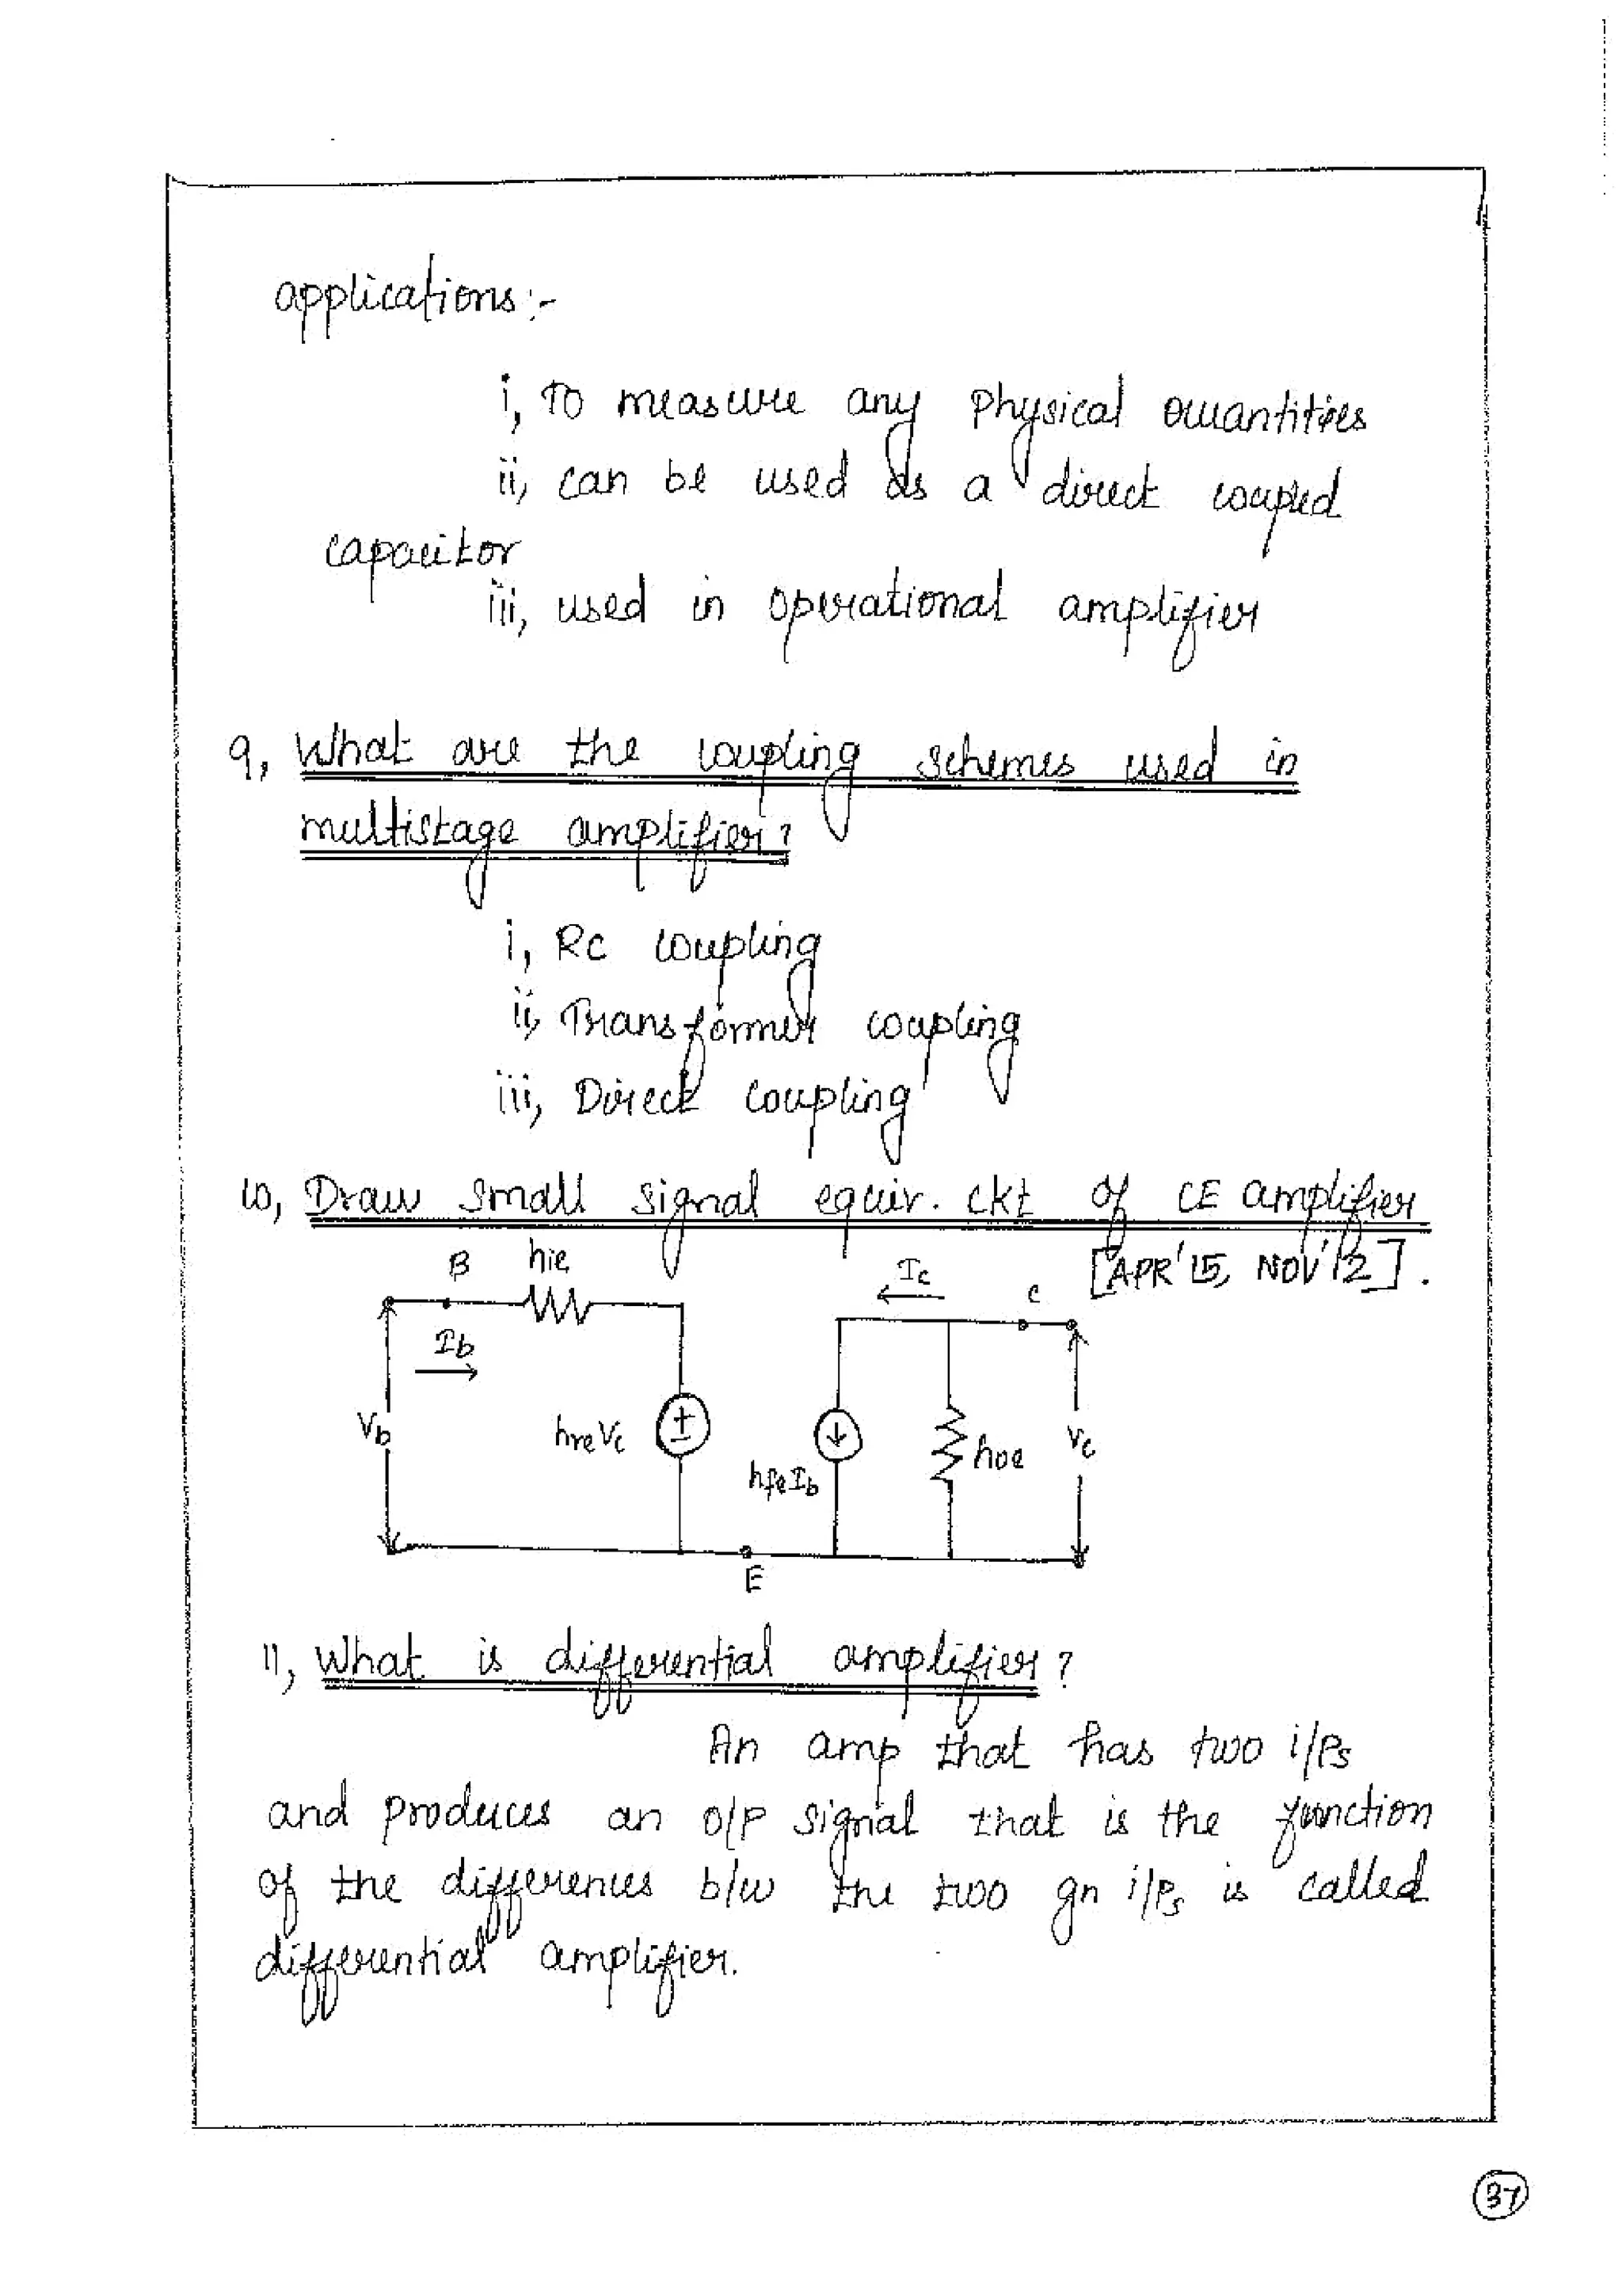 applications:-
i, To measure any physical quantities
ii, can be used as a direct coupled
capacitor
iii, used in operational amplifier
9, What are the coupling schemes used in
multistage amplifier?
i, RC coupling
ii, Transformer coupling
iii, Direct coupling
10, Draw small signal equiv. ckt of CE amplifier
[APR'15, NOV'12].
B hie Ic c
Ib
Vb hreVc hfeIb hoe Vc
E
11, What is differential amplifier?
An amp that has two i/Ps
and produces an o/p signal that is the function
of the differences b/w the two gn i/Ps is called
differential amplifier.
37